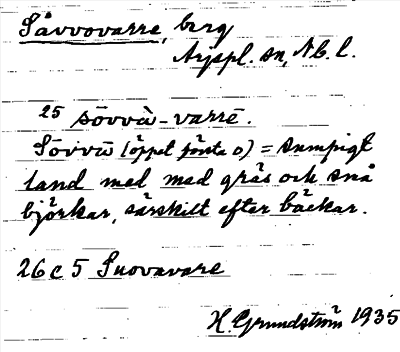 Såvvovarre, berg
Arjepl. sn, Nb. l.
25 sōvvà-varrē.
Sōvvā (öppet första o) = sumpigt
land med med gräs och små
björkar, särskilt efter bäckar.
26 C 5 Suovavare
H. Grundström 1935